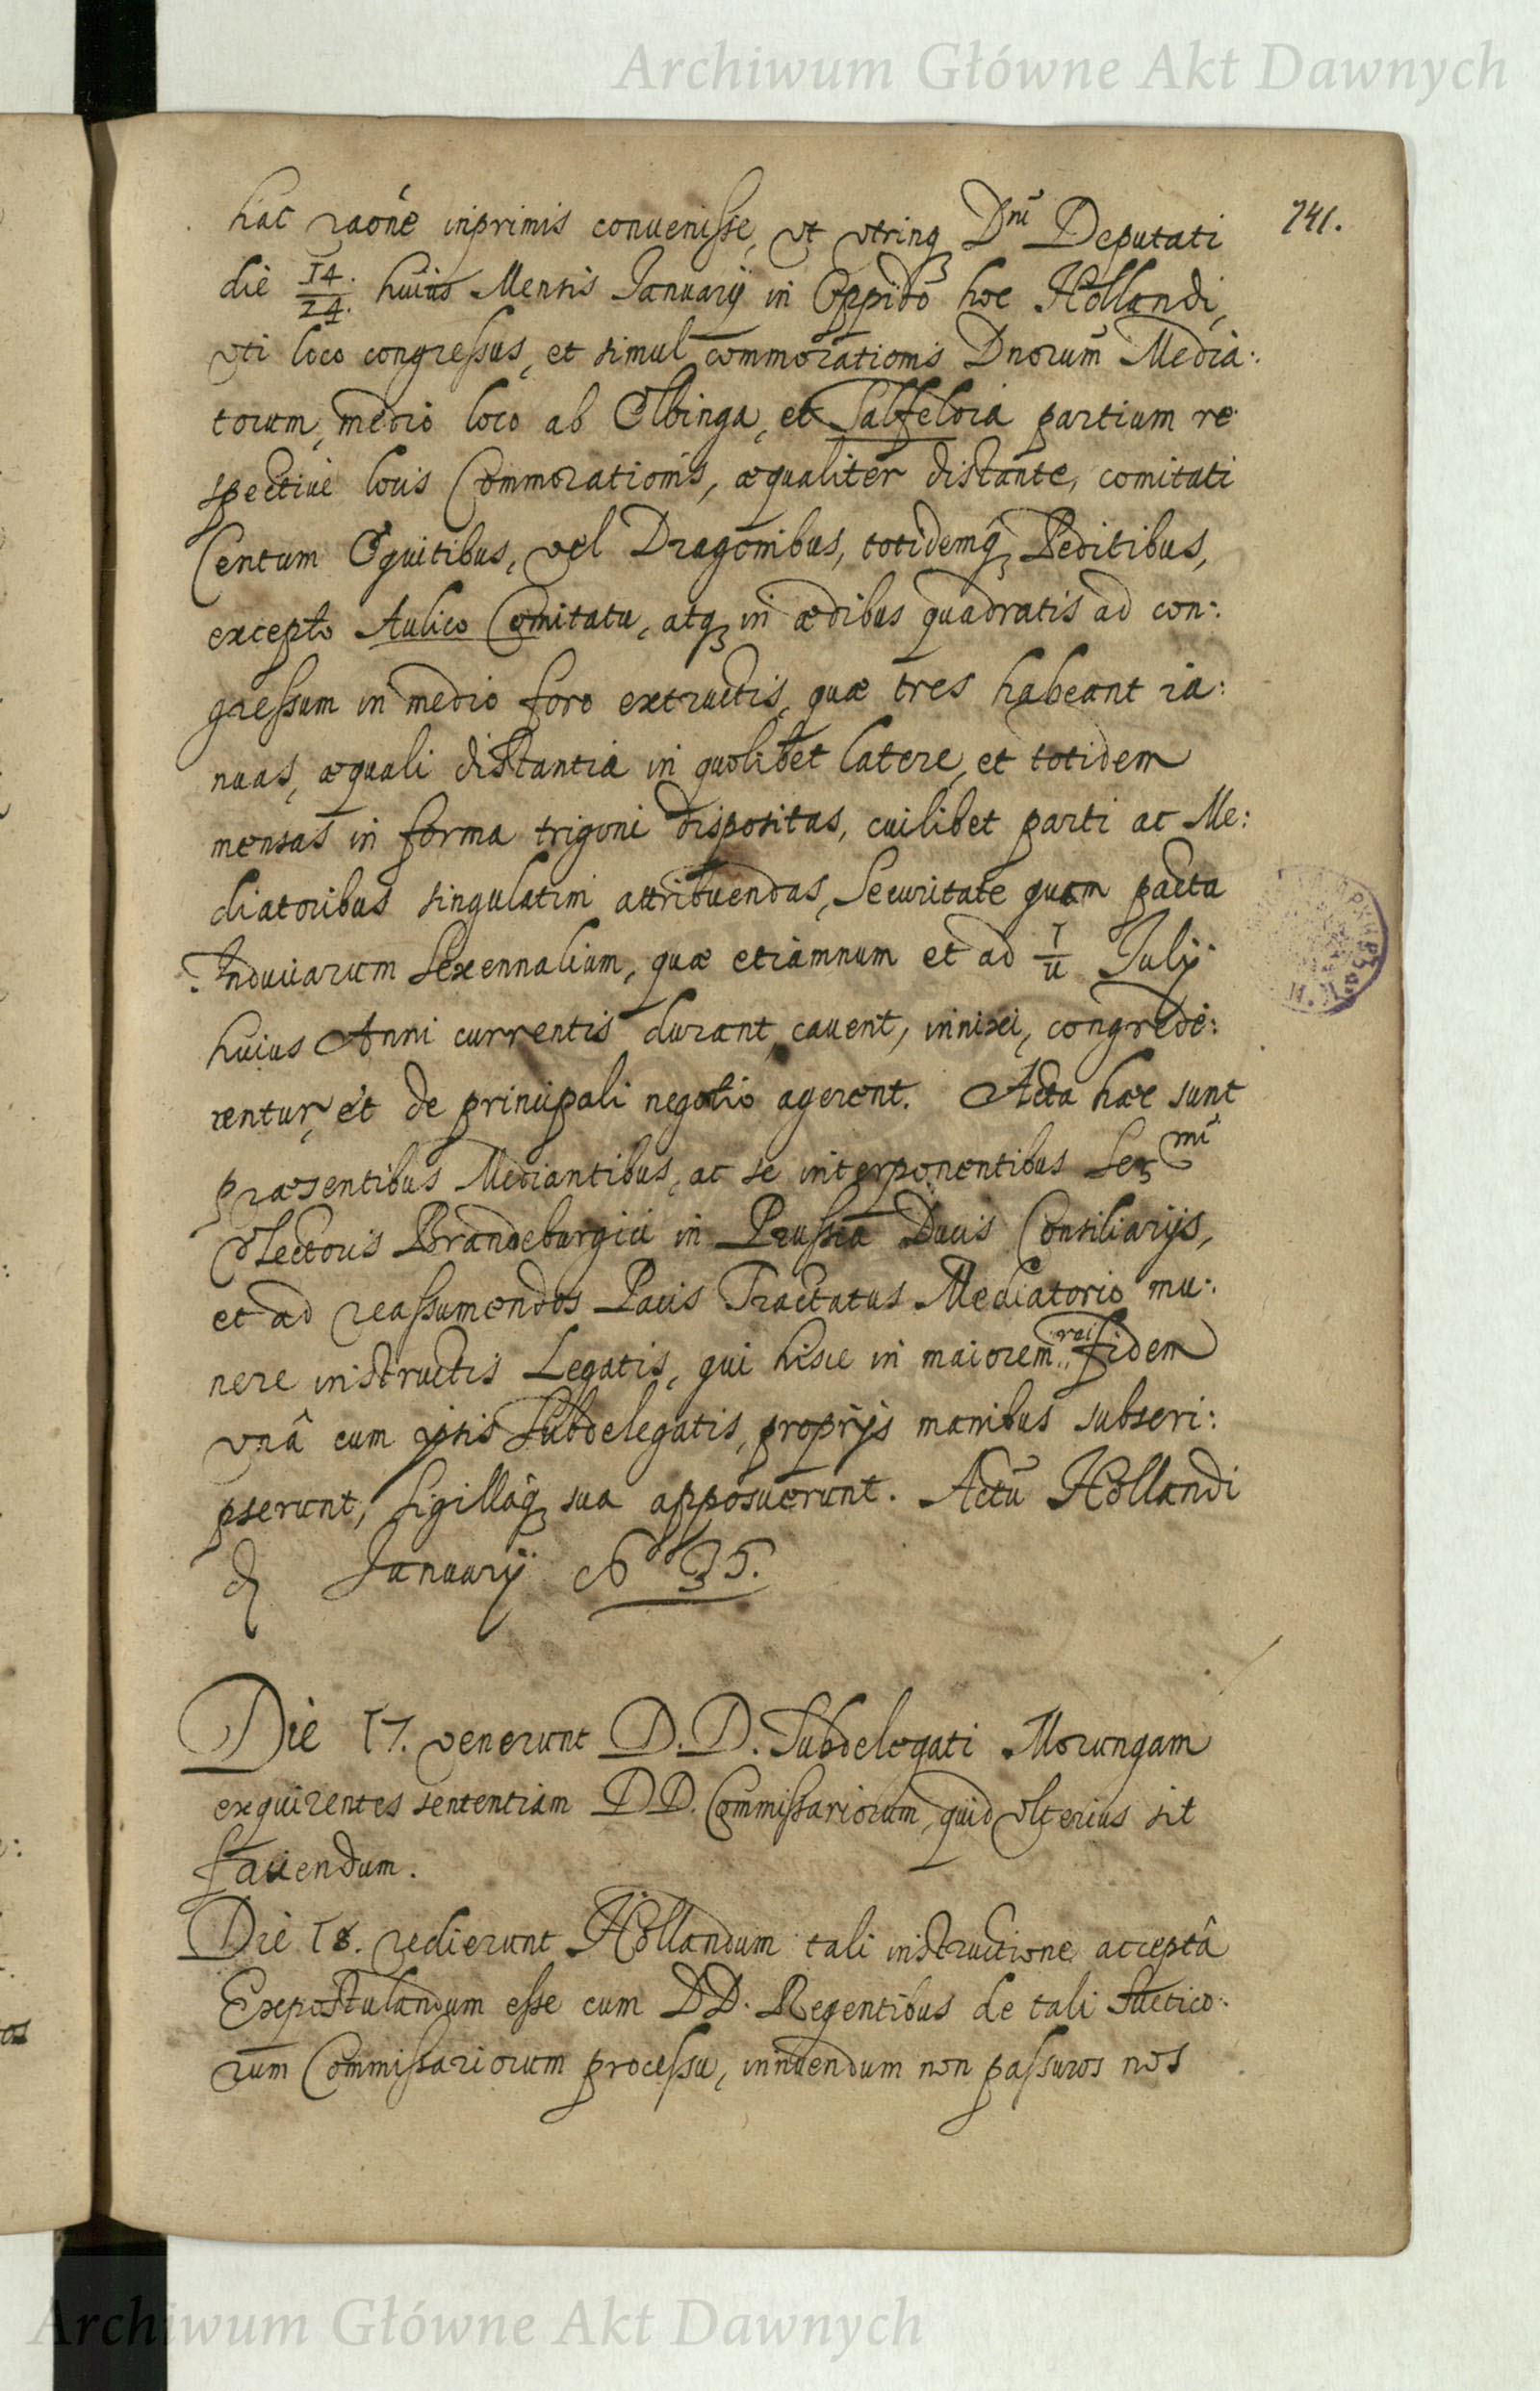 Archiwum Główne Akt Dawnych
741.
hac raōne inprimis conuenisse, vt vtrinq Dnī Deputati
die 14./24. huius Mensis Januarij in Oppido hoc Hollandi,
vti loco congressus, et simul commorationis Dnorum Media:
torum, medio loco ab Elbinga, et Salfeldia partium re
spectiuè locis Commorationis, æqualiter distante, comitati
Centum Equitibus, vel Dragonibus, totidemq Peditibus,
excepto Aulico Comitatu, atq in ædibus quadratis ad con:
gressum in medio foro extructis, quæ tres habeant ia:
nuas, æquali distantia in quolibet latere, et totidem
mensas in forma trigoni dispositas, cuilibet parti ac Me:
diatoribus singulatim attribuendas, Securitate quam pacta
Induciarum Sexennalium, quæ etiamnum et ad 1/11 Julij
huius Anni currentis durant, cauent, innixi, congrede:
rentur, et de principali negotio agerent. Acta hæc sunt
præsentibus Mediantibus, ac se interponentibus Sermi
Electoris Brandeburgici in Prussia Ducis Consiliarijs,
et ad reassumendos Pacis Tractatus Mediatorio mu:
nere instructis Legatis, qui hisce in maiorem rei fidem
vnâ cum ipsis Subdelegatis, proprijs manibus subscri:
pserunt, sigillaq sua apposuerunt. Actū Hollandi
d Januarij Aº 35.
Die 17. venerunt D.D. Subdelegati Morungam
exquirentes sententiam DD. Commissariorum, quid vlterius sit
faciendum.
Die 18. redierunt Hollandum tali instructione acceptâ
Expostulandum esse cum DD. Regentibus de tali Suetico:
rum Commissariorum processu, innuendum non passuros nos
Archiwum Główne Akt Dawnych